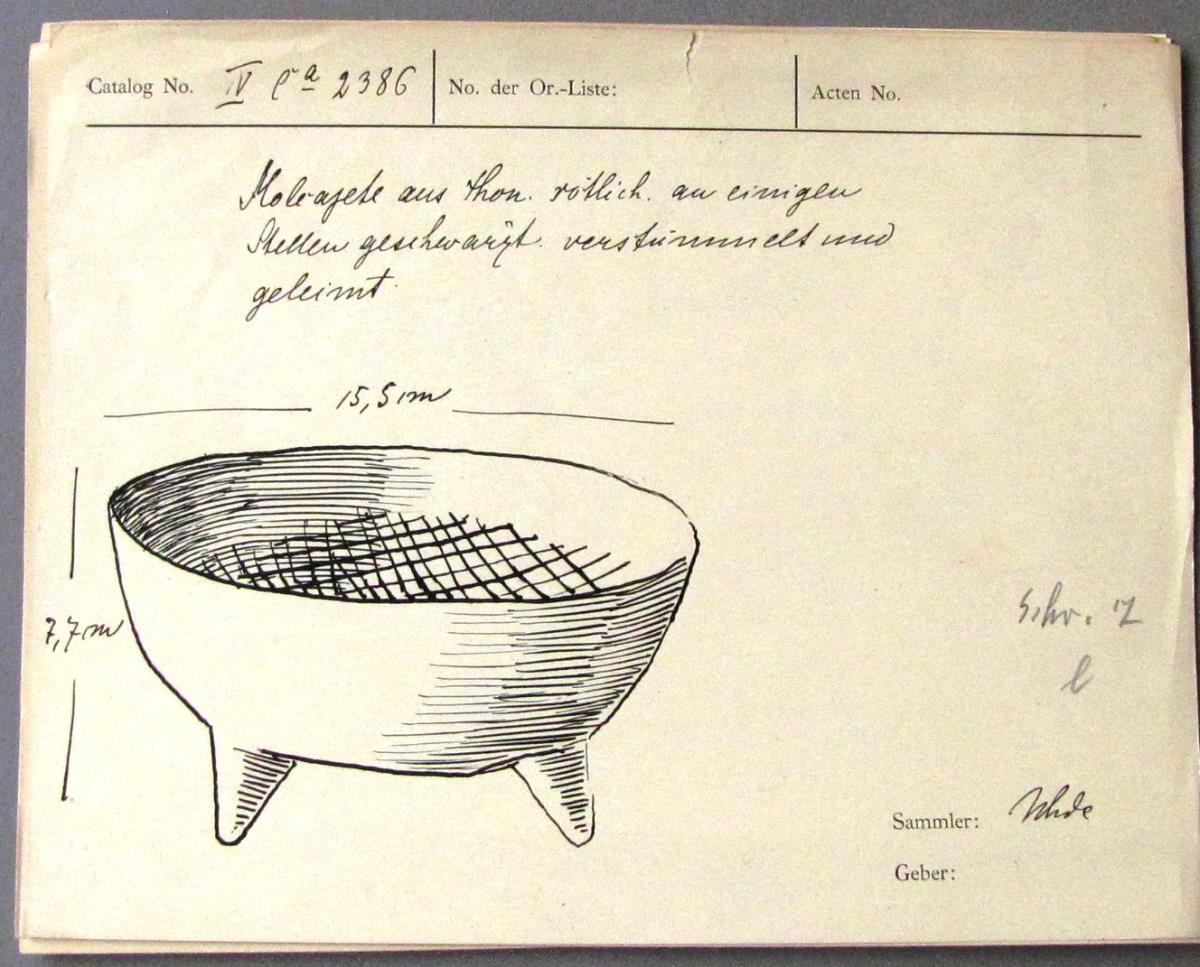 Catalog No. IV Ca 2386 No. der Or.-Liste: Acten No.
Molcajete aus Thon. rötlich. an einigen
Stellen geschwärzt. verstümmelt und
geleimt.
15,5 cm
7,7 cm
Schr. 12
l
Sammler: Uhde
Geber: